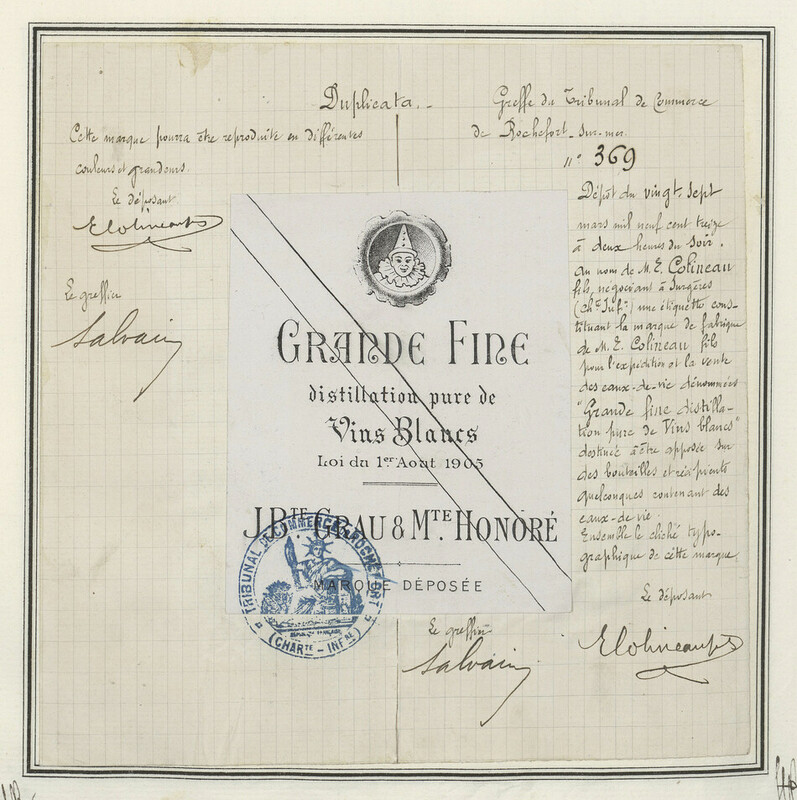 Duplicata._
Greffe du Tribunal de Commerce
de Rochefort-sur-mer
n° 369
Cette marque pourra être reproduite en différentes
couleurs et grandeurs.
Le déposant
E Colineau fils
Le greffier
Salvain
Dépôt du vingt-sept
mars mil neuf cent treize
à deux heures du soir.
au nom de M. E. Colineau
fils, négociant à Surgères
(Chte Infre) une étiquette cons-
tituant la marque de fabrique
de M. E. Colineau fils
pour l'expédition et la vente
des eaux-de-vie dénommées
"Grande fine distilla-
tion pure de Vins blancs"
destinée à être apposée sur
des bouteilles et récipients
quelconques contenant des
eaux-de-vie.
Ensemble le cliché typo-
graphique de cette marque.
Le déposant
E Colineau fils
GRANDE FINE
distillation pure de
Vins Blancs
Loi du 1er Aout 1905
J. BTE GRAU & MTE HONORÉ
MARQUE DÉPOSÉE
TRIBUNAL DE COMMERCE ROCHEFORT
(CHARTE - INFRE)
Le greffier
Salvain